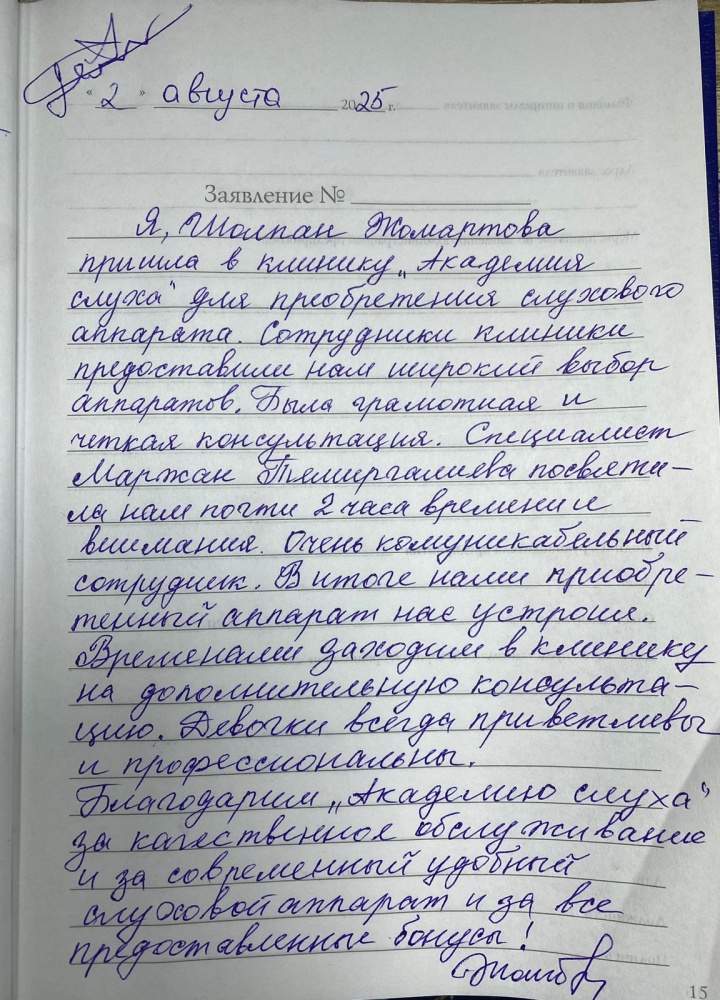 "2" августа 2025 г.
Заявление №
Я, Шолпан Жомартова
пришла в клинику „Академия
слуха" для преобретения слухового
аппарата. Сотрудники клиники
предоставили нам широкий выбор
аппаратов. Была грамотная и
четкая консультация. Специалист
Маржан Темиргалиева посвяти-
ла нам почти 2 часа времени и
внимания. Очень комуникабельный
сотрудник. В итоге нами приобре-
тенный аппарат нас устроил.
Временами заходим в клинику
на дополнительную консульта-
цию. Девочки всегда приветливы
и профессиональны.
Благодарим „Академию слуха"
за качественное обслуживание
и за современный удобный
слуховой аппарат и за все
предоставленные бонусы!
15